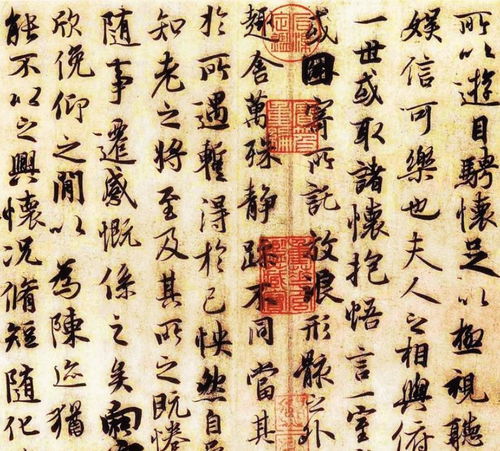 所以遊目騁懷足以極視聽
娛信可樂也夫人之相與俯
一世或取諸懷抱悟言一室
或因寄所託放浪形骸之外
趣舍萬殊靜躁不同當其
於所遇蹔得於己怏然自
知老之將至及其所之既惓
隨事遷感慨係之矣向
欣俛仰之閒以為陳迹猶
能不以之興懷況脩短隨化